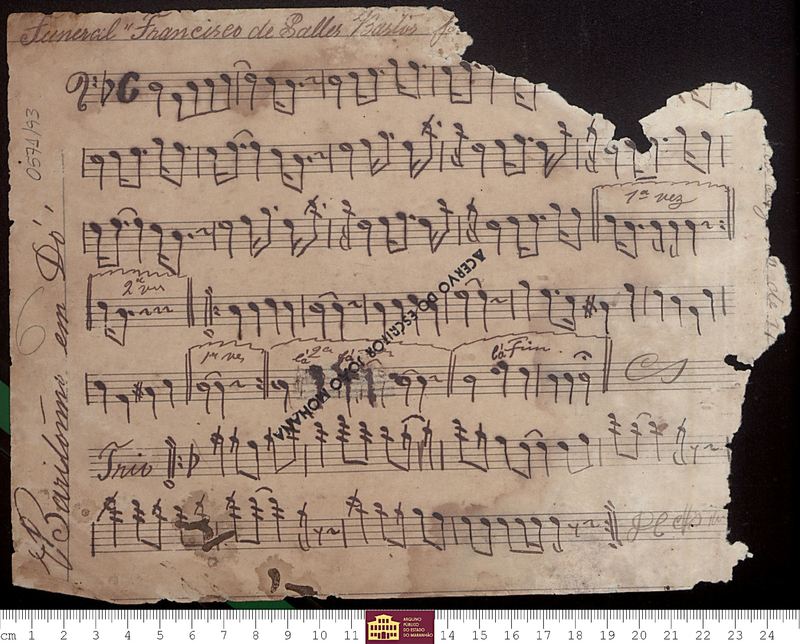 Funeral "Francisco de Salles Bastos
0574/93
Baritono em Dó
1ª vez
2ª vez
1ª vez
2ª
Fim
Trio
ACERVO DO ESCRITOR JOÃO MOHANA
cm 1 2 3 4 5 6 7 8 9 10 11 14 15 16 17 18 19 20 21 22 23 24
ARQUIVO
PÚBLICO
DO ESTADO
DO MARANHÃO